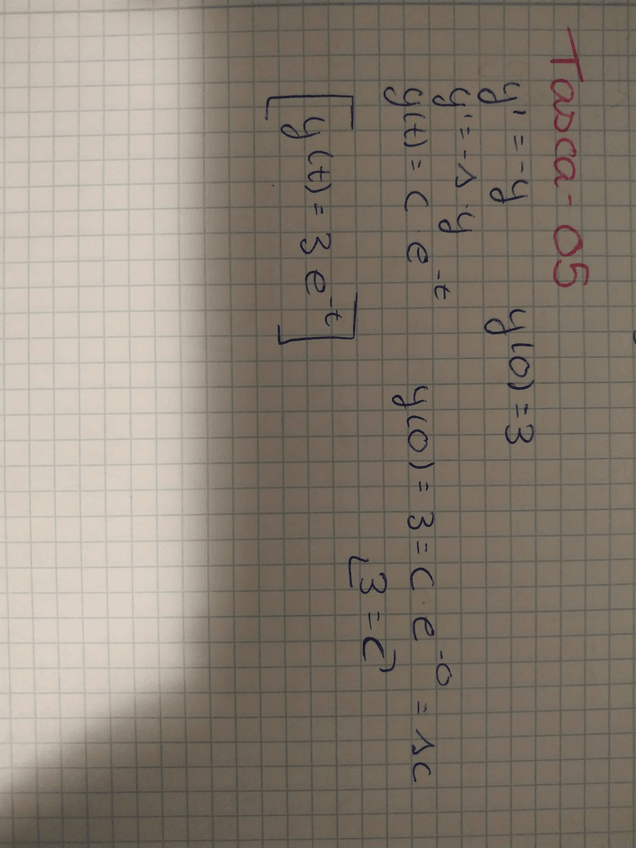 Tasca-05
y' = -y    y(0) = 3
y' = -1·y
y(t) = C · e^-t    y(0) = 3 = C · e^-0 = 1C
[3 = C]
[y(t) = 3 e^-t]